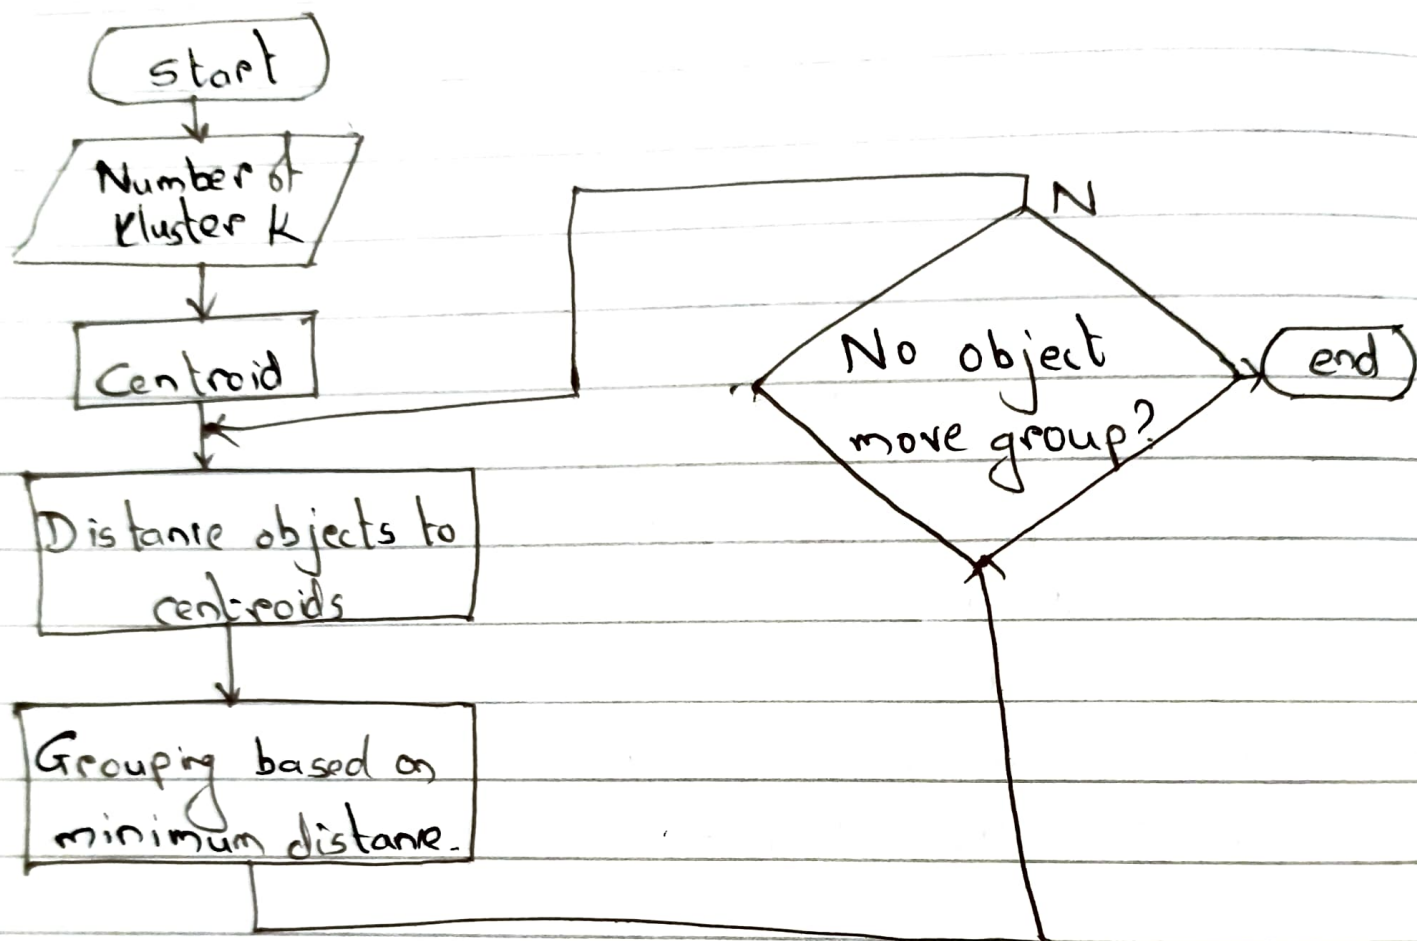 start
Number of
Kluster K
Centroid
Distance objects to
centroids
Grouping based on
minimum distance.
N
No object
move group?
end